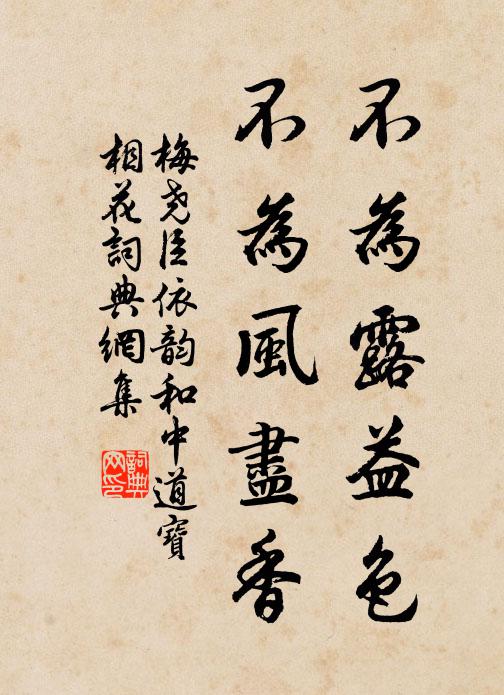 不為露益色
不為風盡香
梅堯臣依韵和中道寶
相花詞典網集
詞典
网印